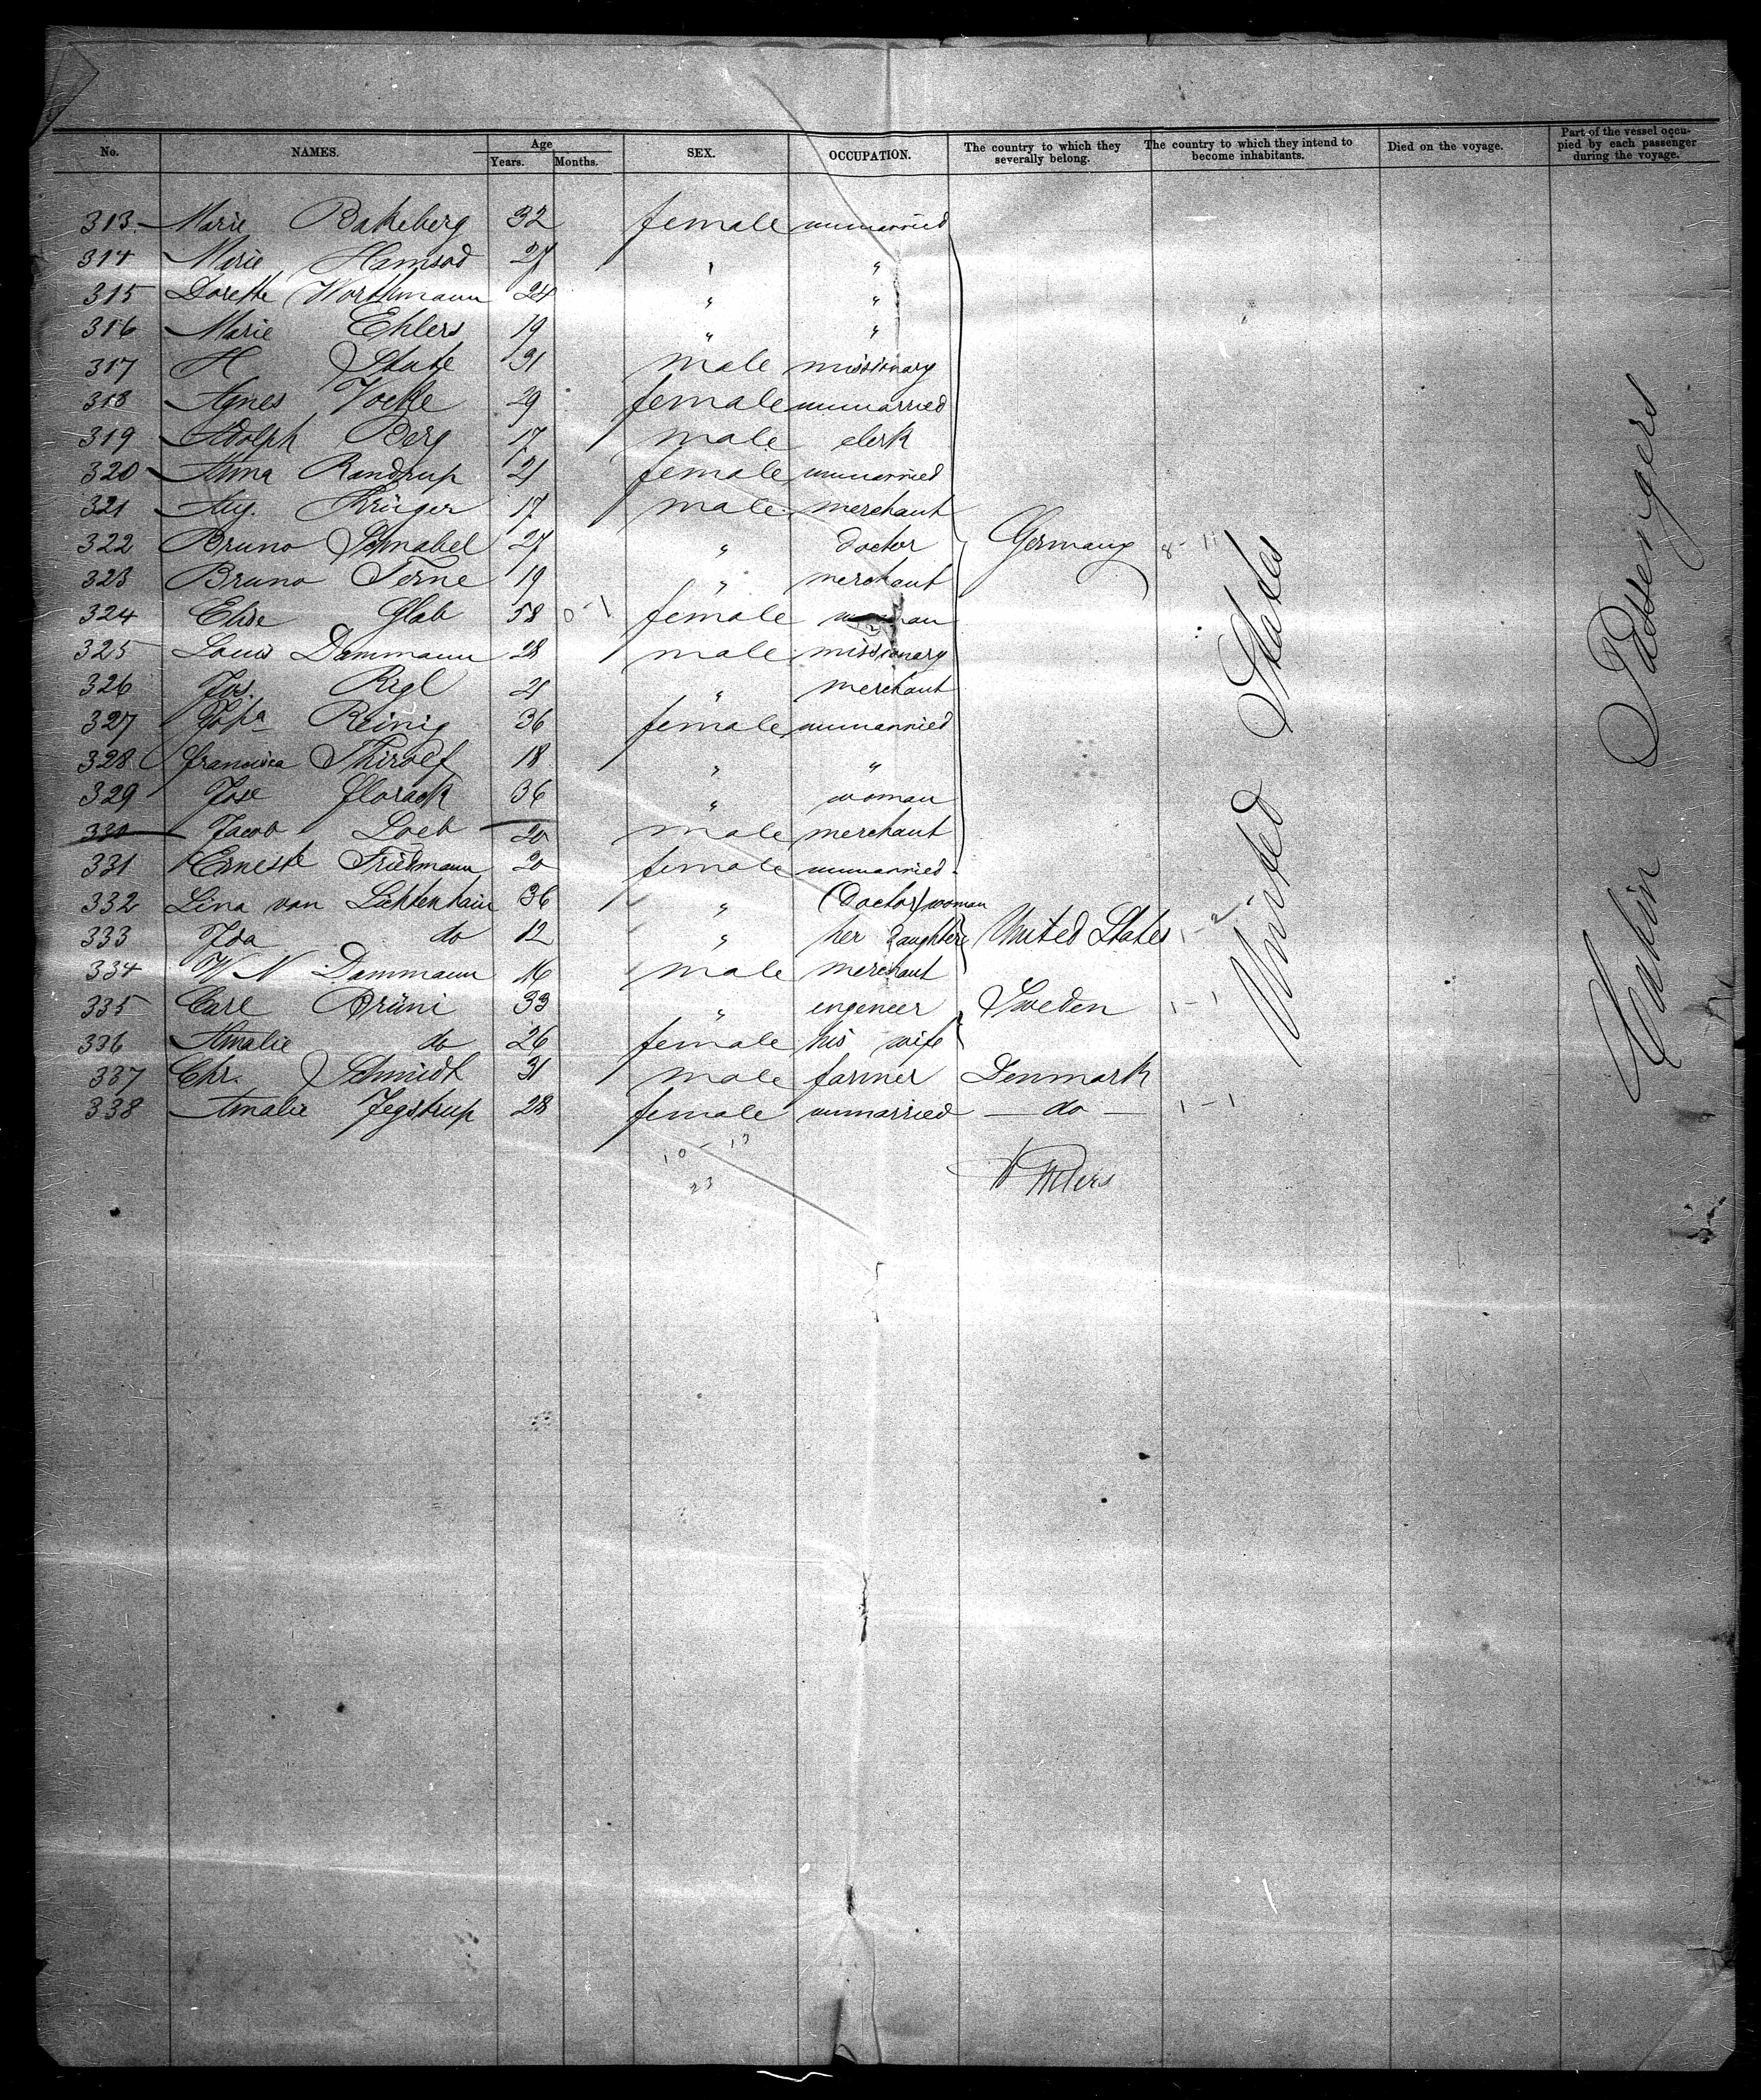 No. NAMES. Age Years. Months. SEX. OCCUPATION. The country to which they severally belong. The country to which they intend to become inhabitants. Died on the voyage. Part of the vessel occupied by each passenger during the voyage.
313 Marie Bakeberg 32 female unmarried
314 Marie Hamsod 27 " "
315 Dorette Worthmann 24 " "
316 Marie Ehlers 19 " "
317 H Stute 31 male missionary
318 Agnes 29 female unmarried
319 Adolph Berg 17 male clerk
320 Anna Randrup 21 female unmarried
321 Aug. Krüger 17 male merchant
322 Bruno Schnabel 27 " doctor Germany 8-11
323 Bruno Ferne 19 " merchant
324 Elise Glab 58 0-1 female woman
325 Louis Dammann 28 male missionary
326 Jos. Rigl 21 " merchant
327 Reinig 36 female unmarried
328 Francisca Thirolf 18 " "
329 Jose Florack 36 " woman
330 Jacob Loeb 20 male merchant
331 Ernestk Friedmann 20 female unmarried
332 Lina van Lichtenhain 36 " (Doctor) woman
333 Ida do 12 " her daughter United States 1-2
334 W N Dammann 16 male merchant
335 Carl Brüni 33 " engeneer Sweden 1-1
336 Amalie do 26 female his wife
337 Chr. Schmidt 31 male farmer Denmark
338 Amalie Jegstrup 28 female unmarried — do — 1-1
10-13
23
United States
Cabin Passengers